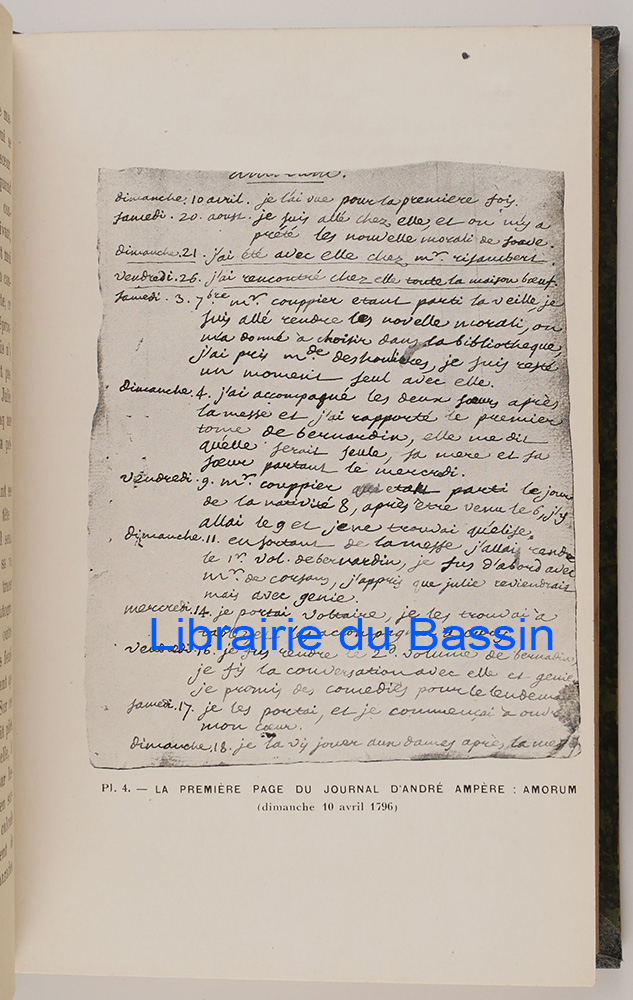 dimanche. 10 avril. je l'ai vue pour la première fois.
samedi. 20. aoust. je suis allé chez elle, et on m'y a
prété les nouvelle morali de soave.
dimanche. 21. j'ai été avec elle chez mr. risambert.
vendredi. 26. j'ai rencontré chez elle toute la maison bœuf.
samedi. 3. 7bre mr. couppier etant parti la veille je
suis allé rendre les novelle morali, on
m'a donné a choisir dans la bibliotheque,
j'ai pris mde deshoulieres, je suis resté
un moment seul avec elle.
dimanche. 4. j'ai accompagné les deux sœurs après
la messe et j'ai rapporté le premier
tome de bernardin, elle me dit
qu'elle serait seule, sa mere et sa
sœur partant le mercredi.
vendredi. 9. mr. couppier parti le jour
de la nativité 8, après être venu le 6, j'y
allai le 9 et je ne trouvai qu'elise.
dimanche. 11. en sortant de la messe j'allai rendre
le 1r. vol. de bernardin, je fus d'abord avec
mr. de corsans, j'appris que julie reviendrait
mais avec genie.
mercredi. 14. je portai voltaire, je les trouvai a
Librairie du Bassin
vendredi. 16. je fus rendre le 2d. volume de bernardin,
je fis la conversation avec elle et genie
je promis des comedies pour le lendemain
samedi. 17. je les portai, et je commençai a ouvrir
mon cœur.
dimanche. 18. je la vis jouer aux dames après la messe
Pl. 4. — LA PREMIÈRE PAGE DU JOURNAL D'ANDRÉ AMPÈRE : AMORUM
(dimanche 10 avril 1796)